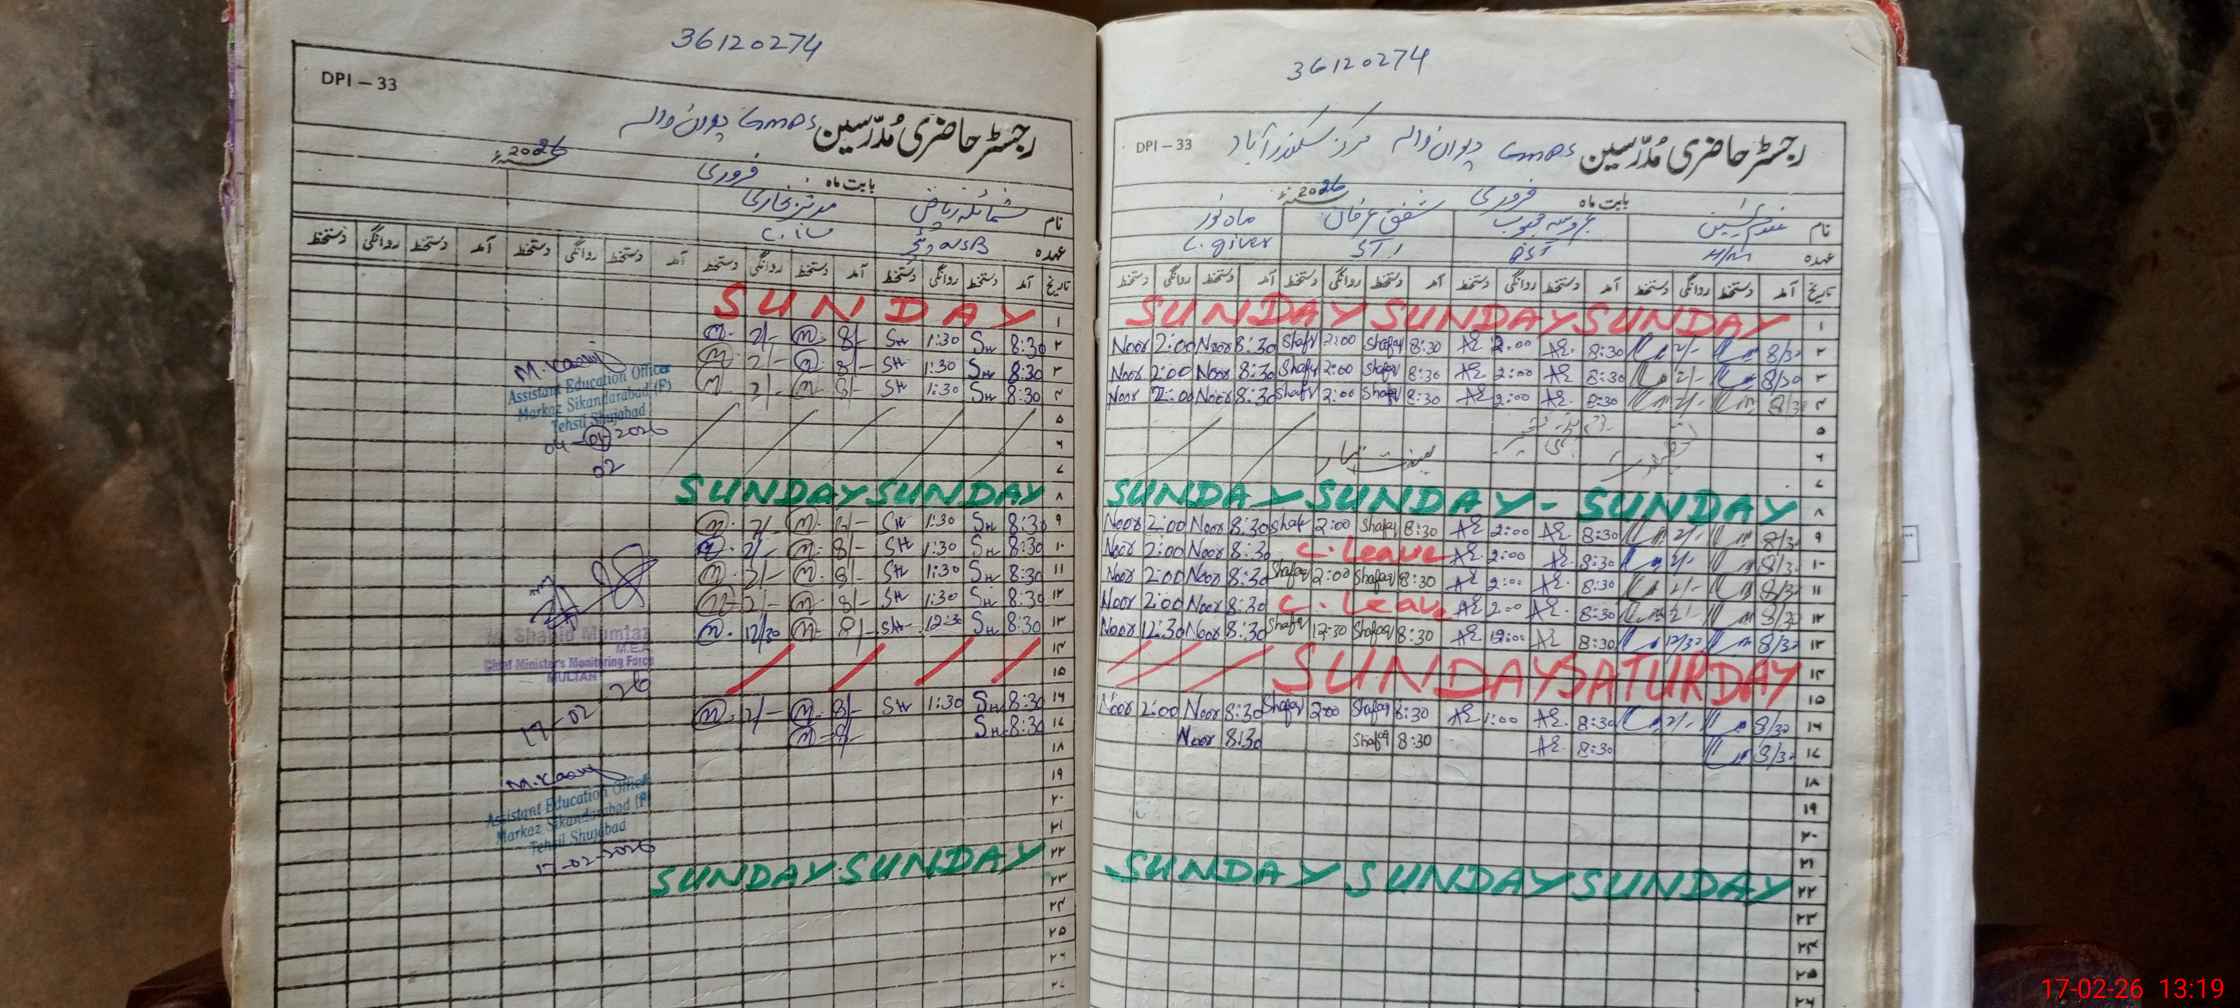 36120274
DPI – 33
رجسٹر حاضری مُدرّسین GMPS
بابت ماہ فروری 2026
نام شمائلہ ریاض
عہدہ
تاریخ آمد دستخط روانگی دستخط آمد دستخط روانگی دستخط آمد دستخط روانگی دستخط آمد دستخط روانگی دستخط
۱ SUNDAY
۲ 8:30 SH 1:30 SH 8/- M. 2/- M.
۳ 8:30 SH 1:30 SH 8/- M. 2/- M.
۴ 8:30 SH 1:30 SH 8/- M. 2/- M.
۵
۶
۷
۸ SUNDAY SUNDAY
۹ 8:30 SH 1:30 SH 8/- M. 2/- M.
۱۰ 8:30 SH 1:30 SH 8/- M. 2/- M.
۱۱ 8:30 SH 1:30 SH 8/- M. 2/- M.
۱۲ 8:30 SH 1:30 SH 8/- M. 2/- M.
۱۳ 8:30 SH 12:30 SH 8/- M. 12/30 M.
۱۴
۱۵
۱۶ 8:30 SH 1:30 SH 8/- M. 2/- M.
۱۷ 8:30 SH 8/- M.
۱۸
۱۹
۲۰
۲۱
۲۲ SUNDAY SUNDAY
۲۳
۲۴
۲۵
۲۶
M. Kasif
Assistant Education Officer
Markaz Sikandarabad (F)
Tehsil Shujabad
04-2026
02
M. Shahid Mumtaz
M.E.A
Chief Minister's Monitoring Force
MULTAN
17-02-26
Assistant Education Officer
Markaz Sikandarabad (F)
Tehsil Shujabad
17-02-2026
36120274
DPI – 33
رجسٹر حاضری مُدرّسین GMPS مرکز سکندر آباد
بابت ماہ فروری 2026
نام شفق عرفان ماہ نور
عہدہ H/M PST STI C. giver
تاریخ آمد دستخط روانگی دستخط آمد دستخط روانگی دستخط آمد دستخط روانگی دستخط آمد دستخط روانگی دستخط
۱ SUNDAY SUNDAY SUNDAY
۲ 8/30 2/- 8:30 2:00 8:30 Shafaq 2:00 Shafaq 8:30 Noor 2:00 Noor
۳ 8/30 2/- 8:30 2:00 8:30 Shafaq 2:00 Shafaq 8:30 Noor 2:00 Noor
۴ 8/30 2/- 8:30 2:00 8:30 Shafaq 2:00 Shafaq 8:30 Noor 2:00 Noor
۵
۶
۷
۸ SUNDAY SUNDAY - SUNDAY
۹ 8/30 2/- 8:30 2:00 8:30 Shafaq 2:00 Shafaq 8:30 Noor 2:00 Noor
۱۰ 8/30 2/- 8:30 2:00 C. leave 8:30 Noor 2:00 Noor
۱۱ 8/30 2/- 8:30 2:00 8:30 Shafaq 2:00 Shafaq 8:30 Noor 2:00 Noor
۱۲ 8/30 2/- 8:30 2:00 C. Leave 8:30 Noor 2:00 Noor
۱۳ 8/30 12/30 8:30 12:00 8:30 Shafaq 12:30 Shafaq 8:30 Noor 12:30 Noor
۱۴ SUNDAY SATURDAY
۱۵
۱۶ 8/30 2/- 8:30 1:00 8:30 Shafaq 2:00 Shafaq 8:30 Noor 2:00 Noor
۱۷ 8/30 8:30 8:30 Shafaq 8:30 Noor
۱۸
۱۹
۲۰
۲۱
۲۲ SUNDAY SUNDAY SUNDAY
۲۳
۲۴
۲۵
۲۶
17-02-26 13:19